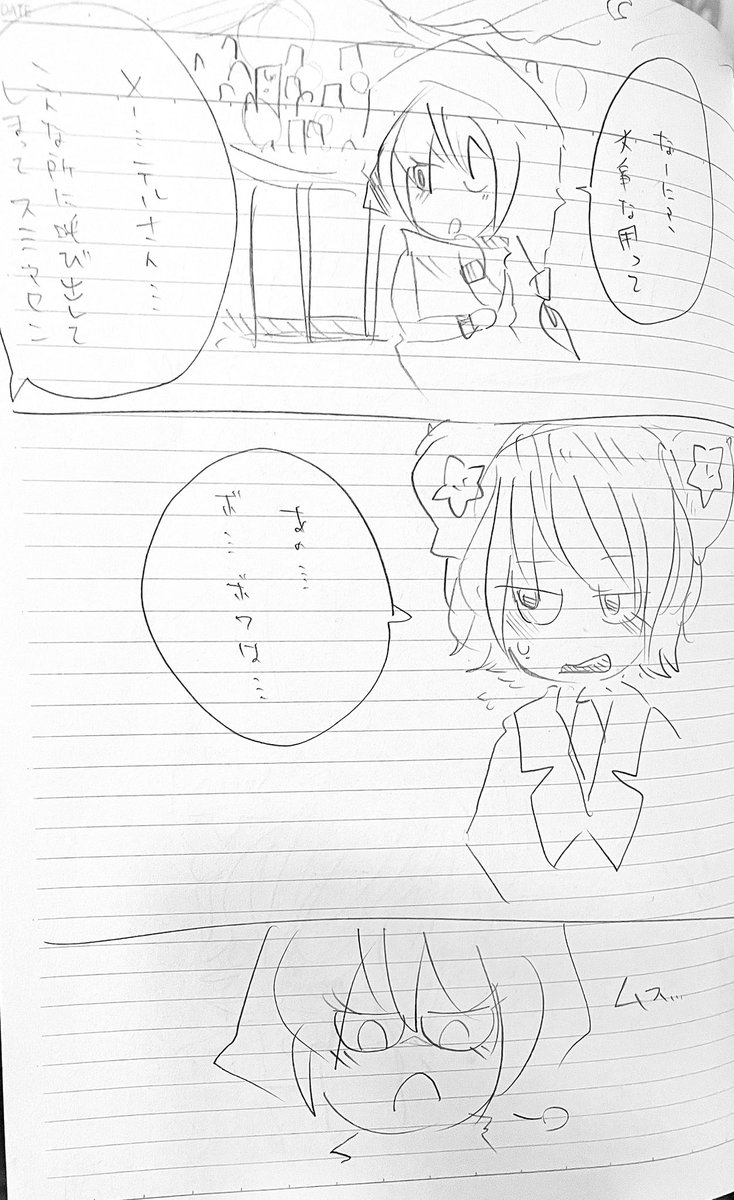 なーにぃ?
大事な用って
メーミテルさん…
こんな所に呼び出して
しまってスミマセン
なの……
だ…だって…
ムス…
DATE